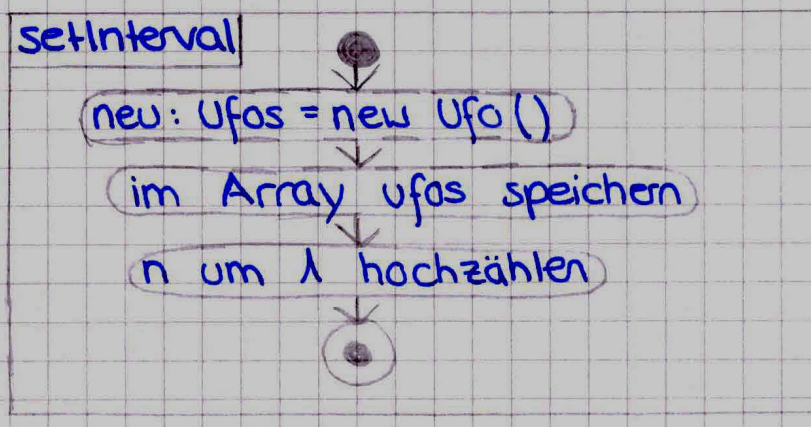 setInterval
neu: Ufos = new Ufo ()
im Array ufos speichern
n um 1 hochzählen